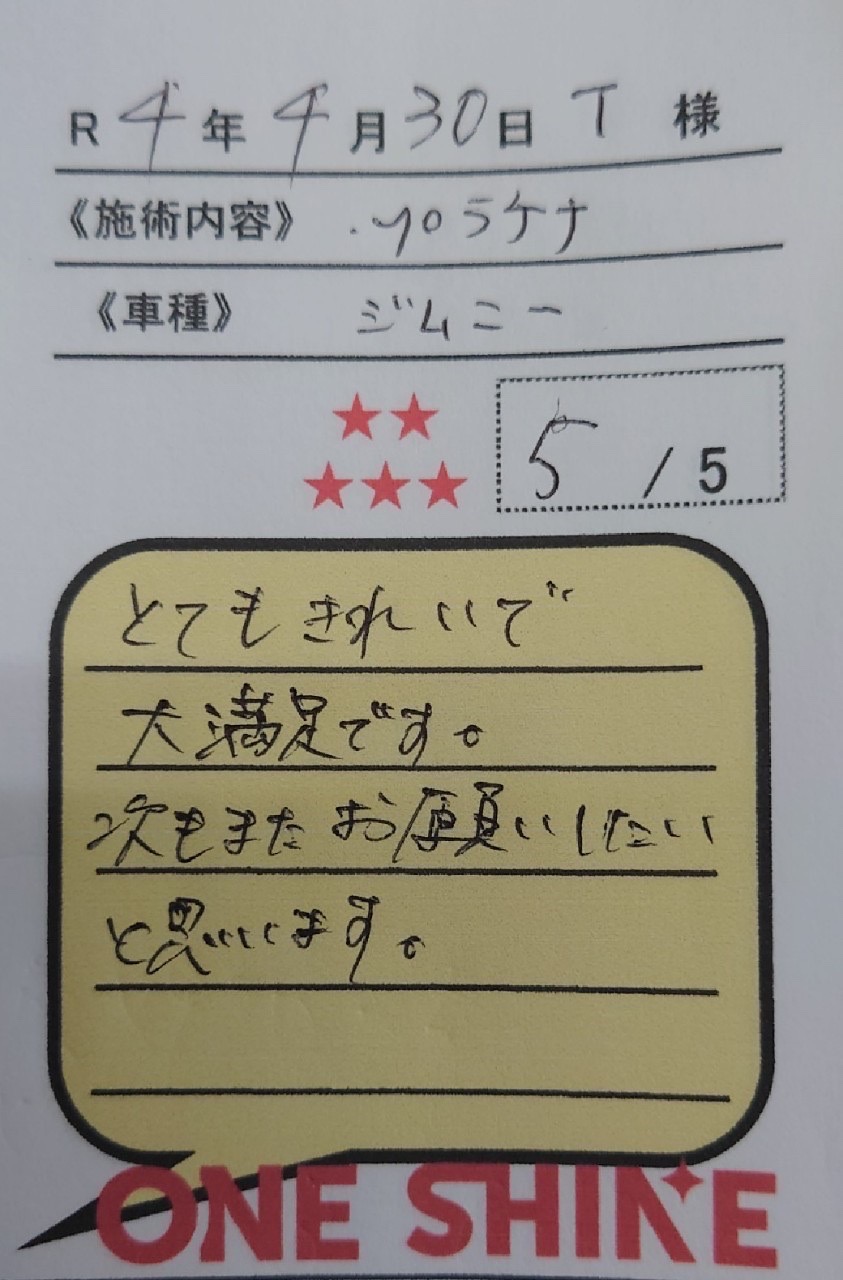 R 4年 4月30日 T 様
《施術内容》
《車種》 ジムニー
5 / 5
とてもきれいで
大満足です。
次もまたお願いしたい
と思います。
ONE SHINE